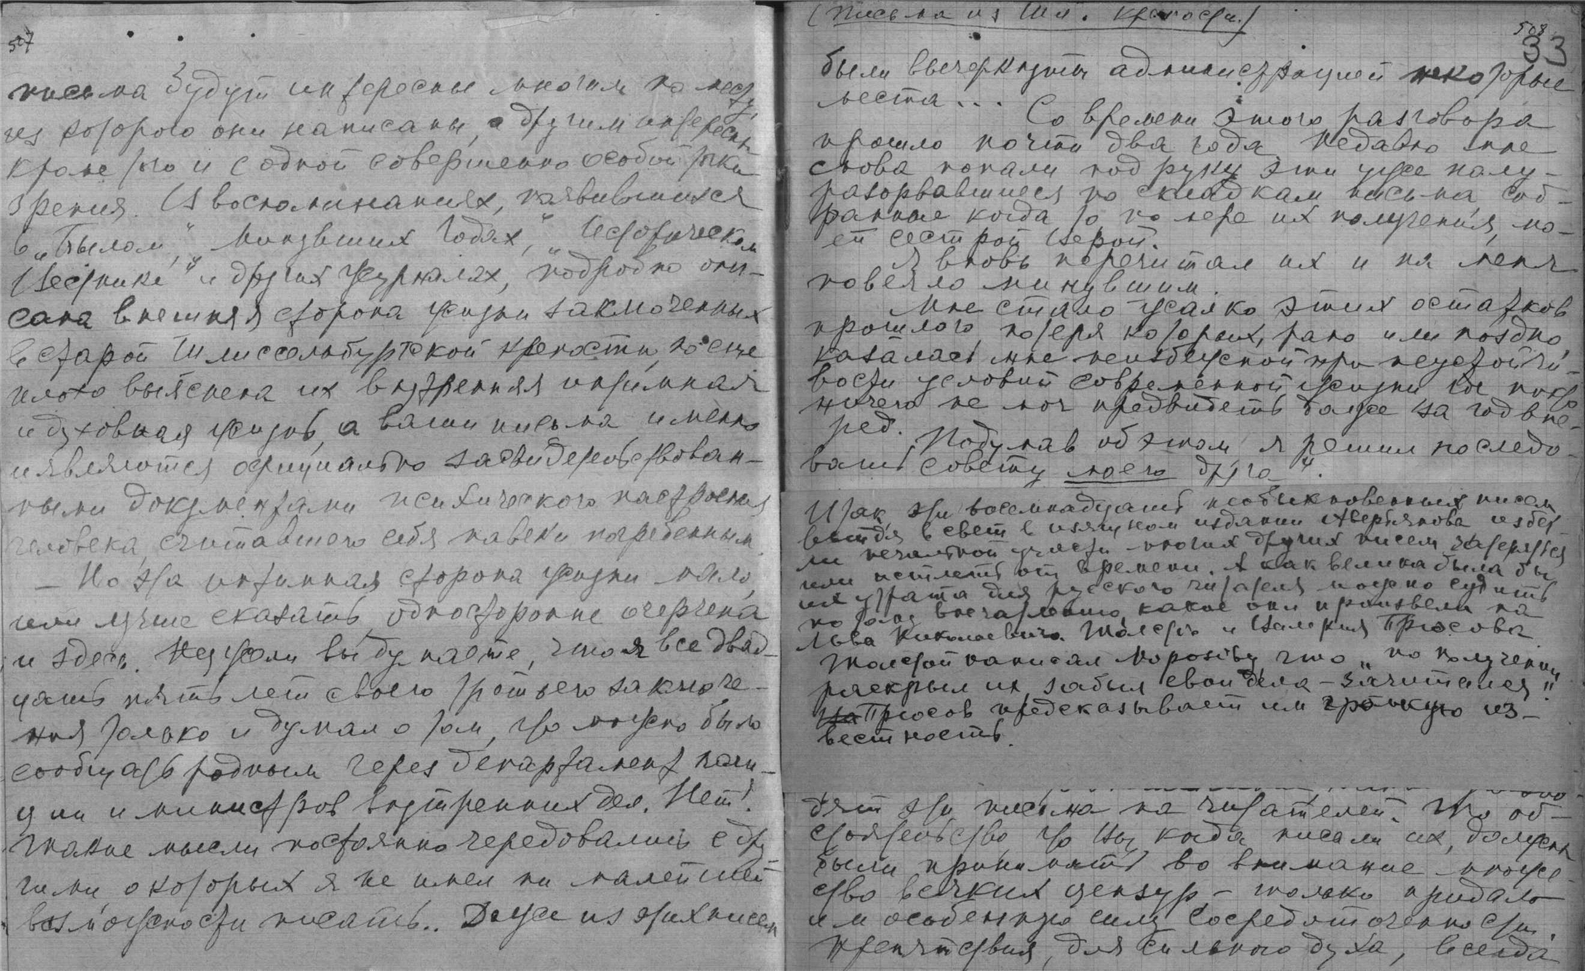 507
письма будут интересны многим по месту,
из которого они написаны, а другим интересны
кроме того и с одной совершенно особой точки
зрения. В воспоминаниях, появившихся
в „Былом", „Минувших Годах", „Историческом
Вестнике" и других журналах, подробно опи-
сана внешняя сторона жизни заключенных
в старой Шлиссельбургской крепости, но еще
плохо выяснена их внутренняя интимная
и духовная жизнь, а ваши письма именно
и являются официально засвидетельствован-
ными документами психического настроения
человека, считавшего себя навеки погребенным.
— Но эта интимная сторона жизни мало,
или лучше сказать односторонне очерчена
и здесь. Неужели вы думаете, что я все двад-
цать пять лет своего третьего заключе-
ния только и думал о том, что можно было
сообщать родным через департамент поли-
ции и министров внутренних дел. Нет!
Такие мысли постоянно чередовались с дру
гими о которых я не имел ни малейшей
возможности писать.. Даже из этих писем
(Письма из Шл. крепости.)
508
33
были вычеркнуты администрацией некоторые
места... Со времени этого разговора
прошло почти два года. Недавно мне
снова попали под руку эти уже полу-
разорвавшиеся по складкам письма соб-
ранные когда то по мере их получения, мо-
ей сестрой Верой.
Я вновь перечитал их и на меня
повеяло минувшим.
Мне стало жалко этих остатков
прошлого, потеря которых, рано или поздно,
казалась мне неизбежной при неустойчи-
вости условий современной жизни, где никто
ничего не мог предвидеть даже за год впе-
ред.
Подумав об этом я решил последо-
вать совету моего друга".
Итак эти восемнадцать необыкновенных писем
выйдя в свет в изящном издании Аверьянова избег
ли печальной участи многих других писем затеряться
или истлеть от времени. А как велика была бы
их утрата для русского читателя можно судить
по тому впечатлению какое они произвели на
Льва Николаевича Толстого и Валерия Брюсова
Толстой написал Морозову, что „по получении
раскрыл их, забыл свои дела – зачитался".
Брюсов предсказывает им громкую из-
вестность.
дят эти письма на читателей. То об-
стоятельство, что Вы, когда писали их, должны
были принимать во внимание множе-
ство всяких цензур – только придало
им особенную силу сосредоточенности.
Препятствия, для сильного духа, всегда